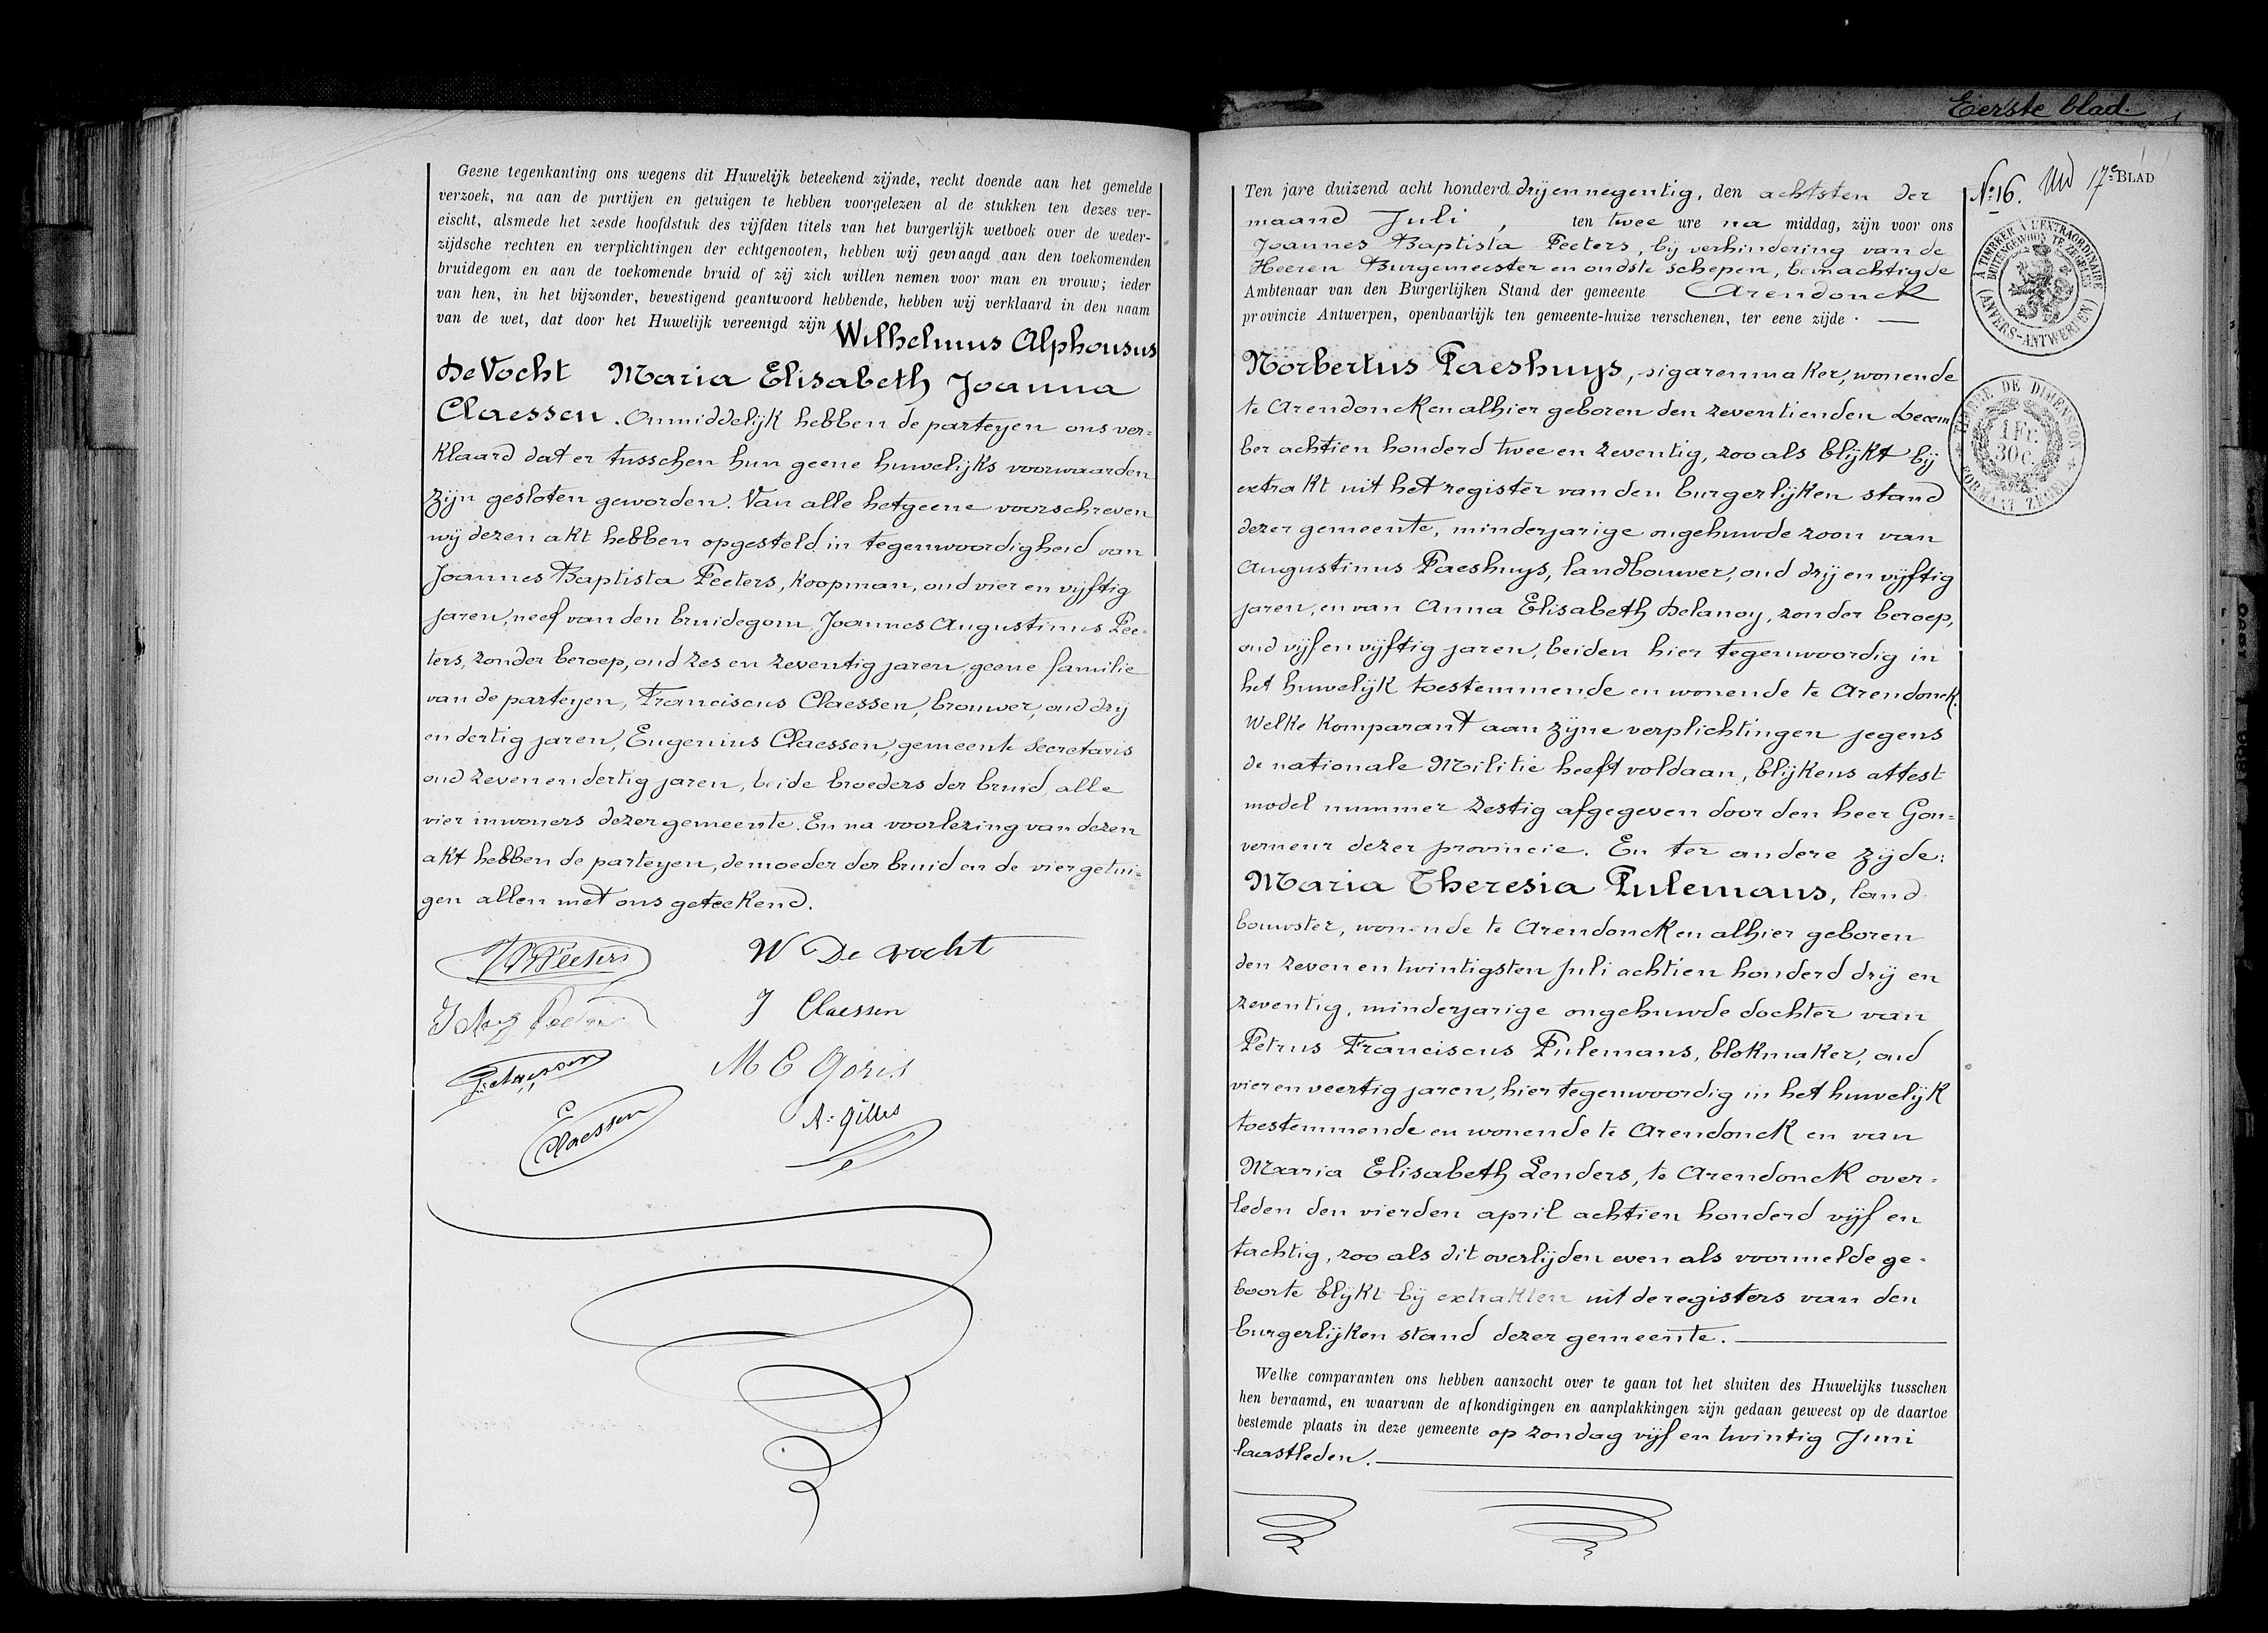 Geene tegenkanting ons wegens dit Huwelijk beteekend zijnde, recht doende aan het gemelde
verzoek, na aan de partijen en getuigen te hebben voorgelezen al de stukken ten dezes ver-
eischt, alsmede het zesde hoofdstuk des vijfden titels van het burgerlijk wetboek over de weder-
zijdsche rechten en verplichtingen der echtgenooten, hebben wij gevraagd aan den toekomenden
bruidegom en aan de toekomende bruid of zij zich willen nemen voor man en vrouw; ieder
van hen, in het bijzonder, bevestigend geantwoord hebbende, hebben wij verklaard in den naam
van de wet, dat door het Huwelijk vereenigd zijn Wilhelmus Alphonsus
De Vocht Maria Elisabeth Joanna
Claessen. Onmiddelijk hebben de parteyen ons ver=
klaard dat er tusschen hun geene huwelijks voorwaarden
zijn gesloten geworden. Van alle hetgeene voorschreven
wij dezen akt hebben opgesteld in tegenwoordigheid van
Joannes Baptista Peeters, koopman, oud vier en vijftig
jaren, neef van den bruidegom, Joannes Augustinus Pee=
ters, zonder beroep, oud zes en zeventig jaren, geene familie
van de parteyen, Franciscus Claessen, brouwer, oud drij
en dertig jaren, Eugenius Claessen, gemeente secretaris
oud zeven en dertig jaren, beide broeders der bruid, alle
vier inwoners dezer gemeente. En na voorlezing van dezen
akt hebben de parteyen, de moeder der bruid en de vier getui=
gen allen met ons geteekend.
W De vocht
J Claessen
M E Goris
E Claessen
A. Gilles
Eerste blad.
No 16.
17e BLAD
Ten jare duizend acht honderd drij en negentig, den achtsten der
maand Juli, ten twee ure na middag, zijn voor ons
Joannes Baptista Peeters, bij verhindering van de
Heeren Burgemeester en oudste schepen, bemachtigde
Ambtenaar van den Burgerlijken Stand der gemeente Arendonck
provincie Antwerpen, openbaarlijk ten gemeente-huize verschenen, ter eene zijde
À TIMBRER À L'EXTRAORDINAIRE
BUITENGEWOON TE ZEGELEN
(ANVERS-ANTWERPEN)
TIMBRE DE DIMENSION
1 Fr.
30 c.
FORMAAT ZEGEL
Norbertus Paeshuys, sigarenmaker, wonende
te Arendonck en alhier geboren den zeventienden Decem
ber achtien honderd twee en zeventig, zoo als blijkt bij
extrakt uit het register van den burgerlijken stand
dezer gemeente, minderjarige ongehuwde zoon van
Augustinus Paeshuys, landbouwer, oud drij en vijftig
jaren, en van Anna Elisabeth Delanoy, zonder beroep,
oud vijf en vijftig jaren, beiden hier tegenwoordig in
het huwelijk toestemmende en wonende te Arendonck.
Welke komparant aan zijne verplichtingen jegens
de nationale Militie heeft voldaan, blijkens attest
model nummer zestig afgegeven door den heer Gou=
verneur dezer provincie. En ter andere zijde:
Maria Theresia Pulemans, land
bouwster, wonende te Arendonck en alhier geboren
den zeven en twintigsten Juli achtien honderd drij en
zeventig, minderjarige ongehuwde dochter van
Petrus Franciscus Pulemans, blokmaker, oud
vier en veertig jaren, hier tegenwoordig in het huwelijk
toestemmende en wonende te Arendonck en van
Maria Elisabeth Lenders, te Arendonck over=
leden den vierden april achtien honderd vijf en
tachtig, zoo als dit overlijden even als voormelde ge-
boorte blijkt bij extrakten uit de registers van den
burgerlijken stand dezer gemeente.
Welke comparanten ons hebben aanzocht over te gaan tot het sluiten des Huwelijks tusschen
hen beraamd, en waarvan de afkondigingen en aanplakkingen zijn gedaan geweest op de daartoe
bestemde plaats in deze gemeente op zondag vijf en twintig Juni
laastleden.